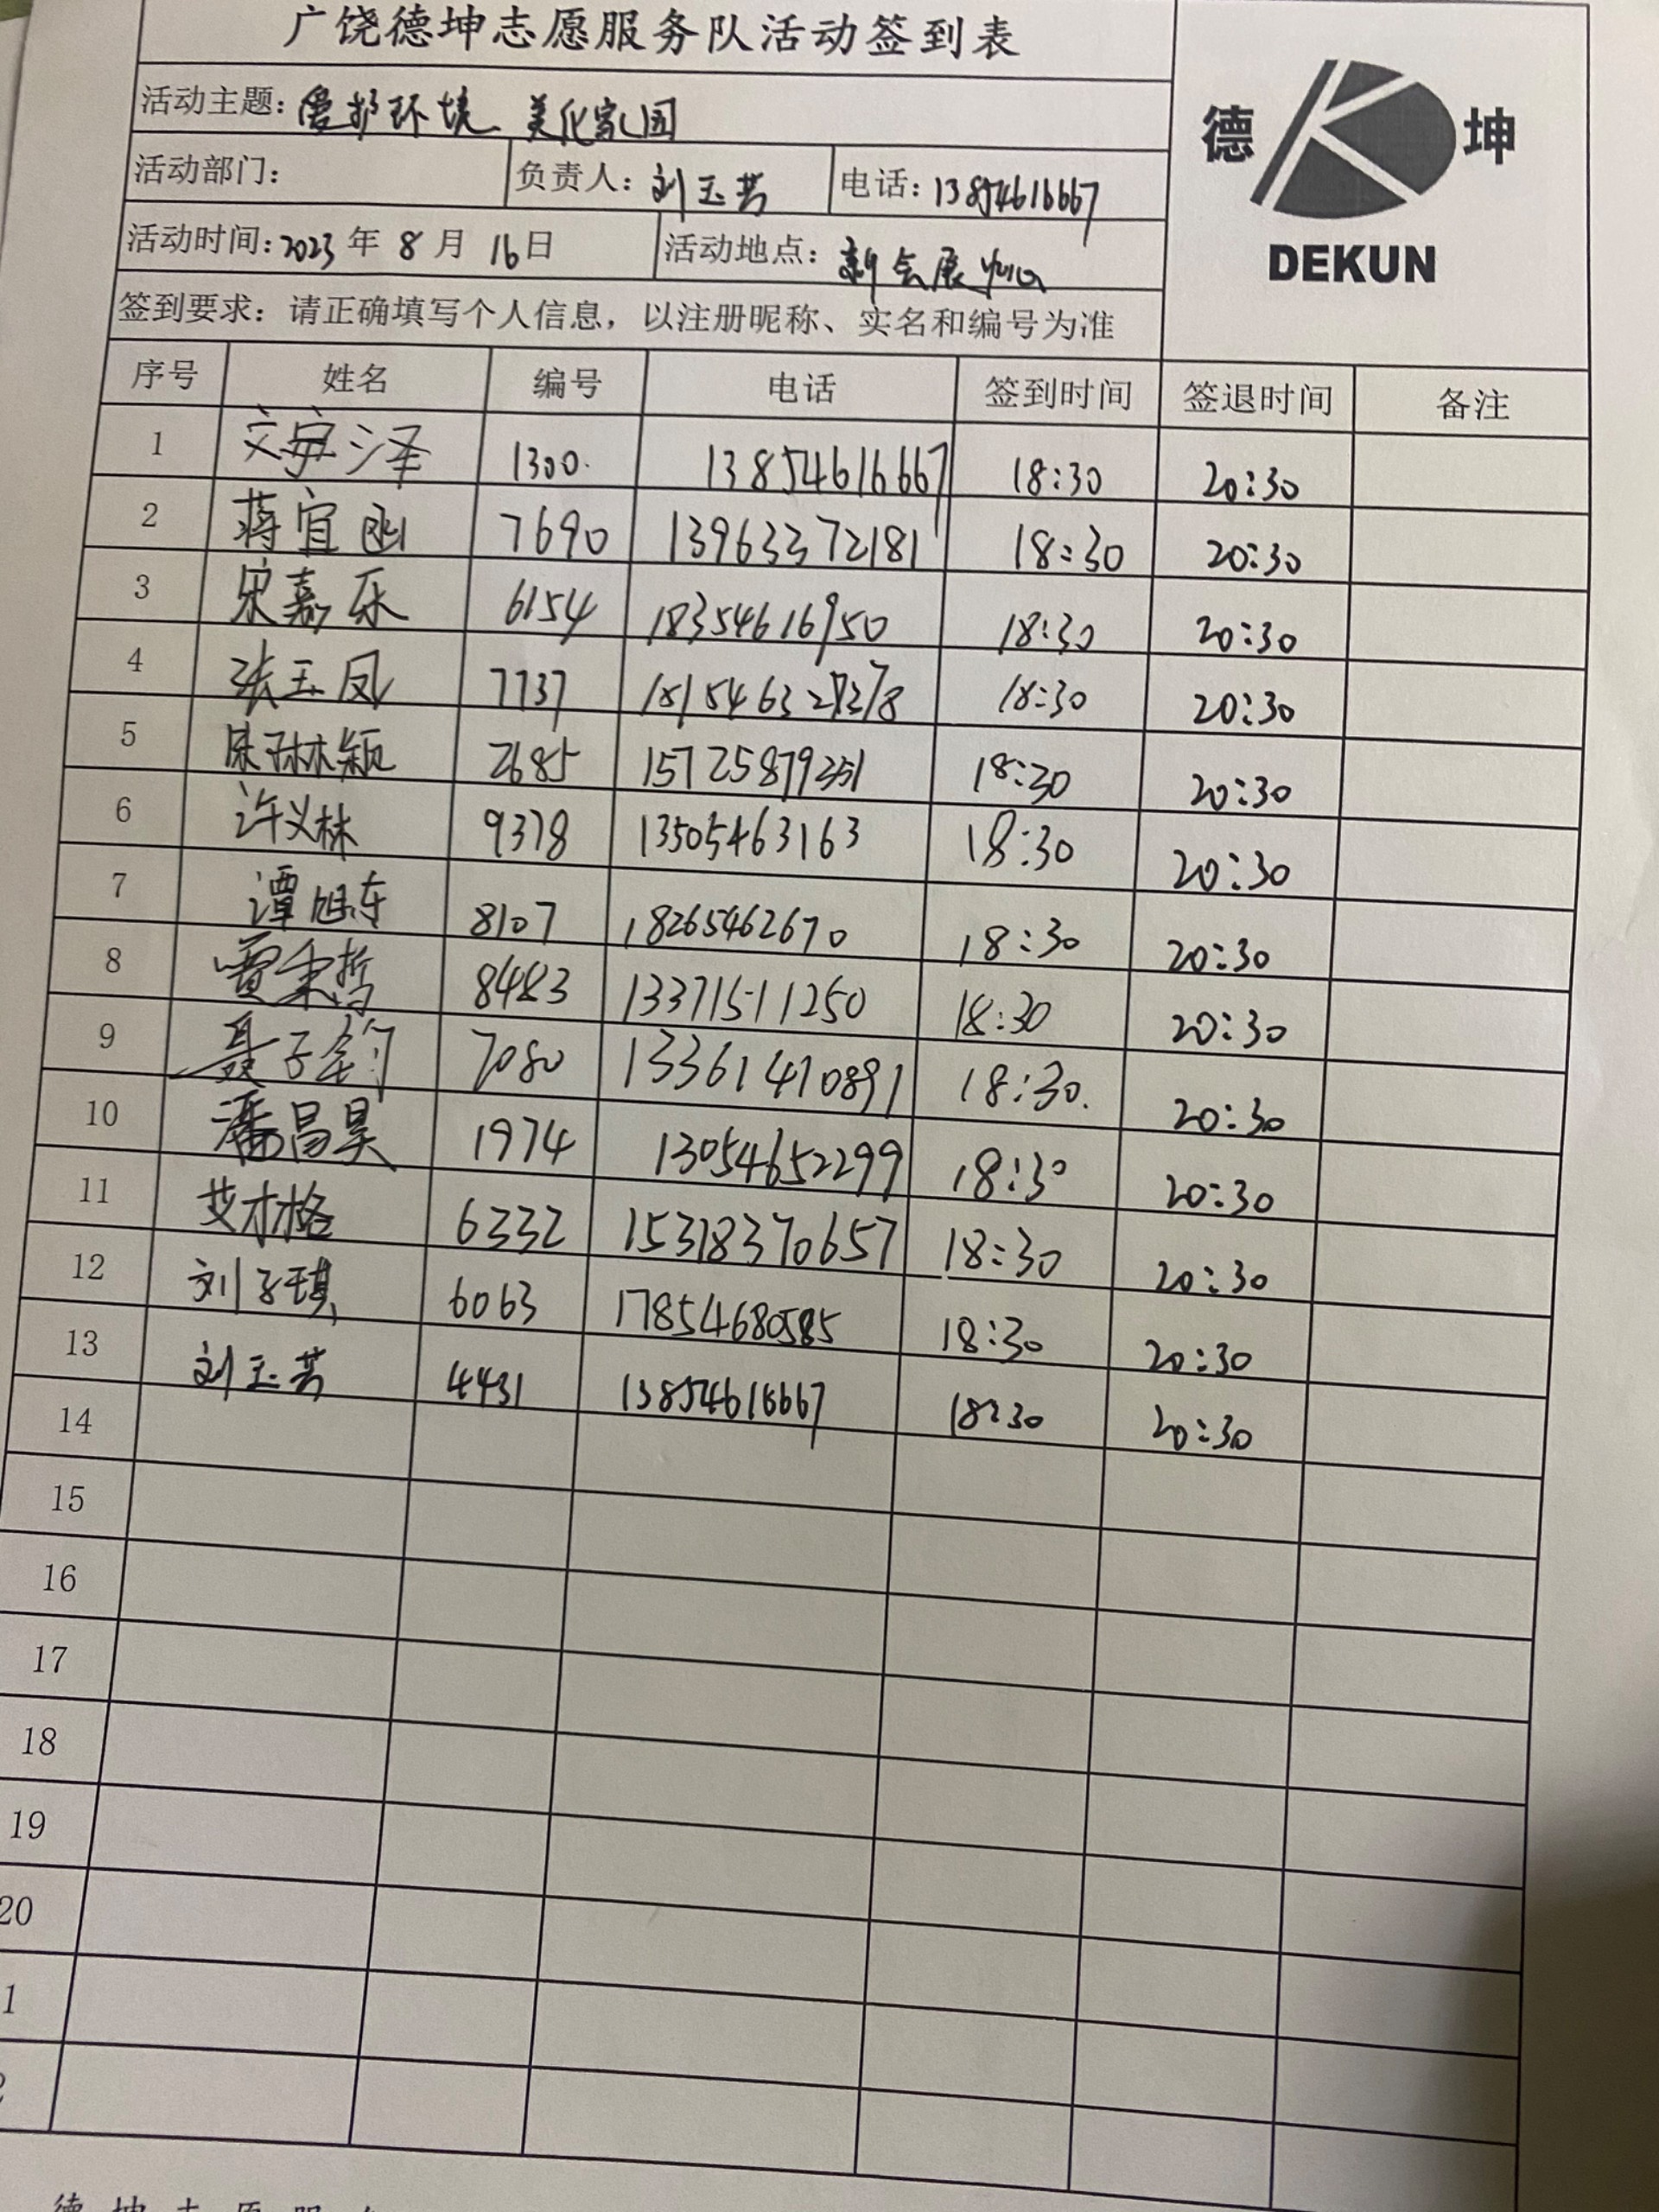 广饶德坤志愿服务队活动签到表
德 坤
DEKUN
活动主题：爱护环境 美化家园
活动部门： 负责人：刘玉芳 电话：13854616667
活动时间：2023年8月16日 活动地点：新会展中心
签到要求：请正确填写个人信息，以注册昵称、实名和编号为准
序号 姓名 编号 电话 签到时间 签退时间 备注
1 1300 13854616667 18:30 20:30
2 蒋宜函 7690 13963372181 18:30 20:30
3 宋嘉乐 6154 18354616950 18:30 20:30
4 张玉凤 7737 18:30 20:30
5 2685 18:30 20:30
6 许义林 9378 13505463163 18:30 20:30
7 谭旭东 8107 18265462670 18:30 20:30
8 8483 13371511250 18:30 20:30
9 聂子钧 7080 13361410891 18:30 20:30
10 潘昌昊 1974 13054652299 18:30 20:30
11 艾才格 6332 15318370657 18:30 20:30
12 刘子琪 6063 17854680585 18:30 20:30
13 刘玉芳 4431 13854616667 18:30 20:30
14
15
16
17
18
19
20
1
2
德坤志愿服务